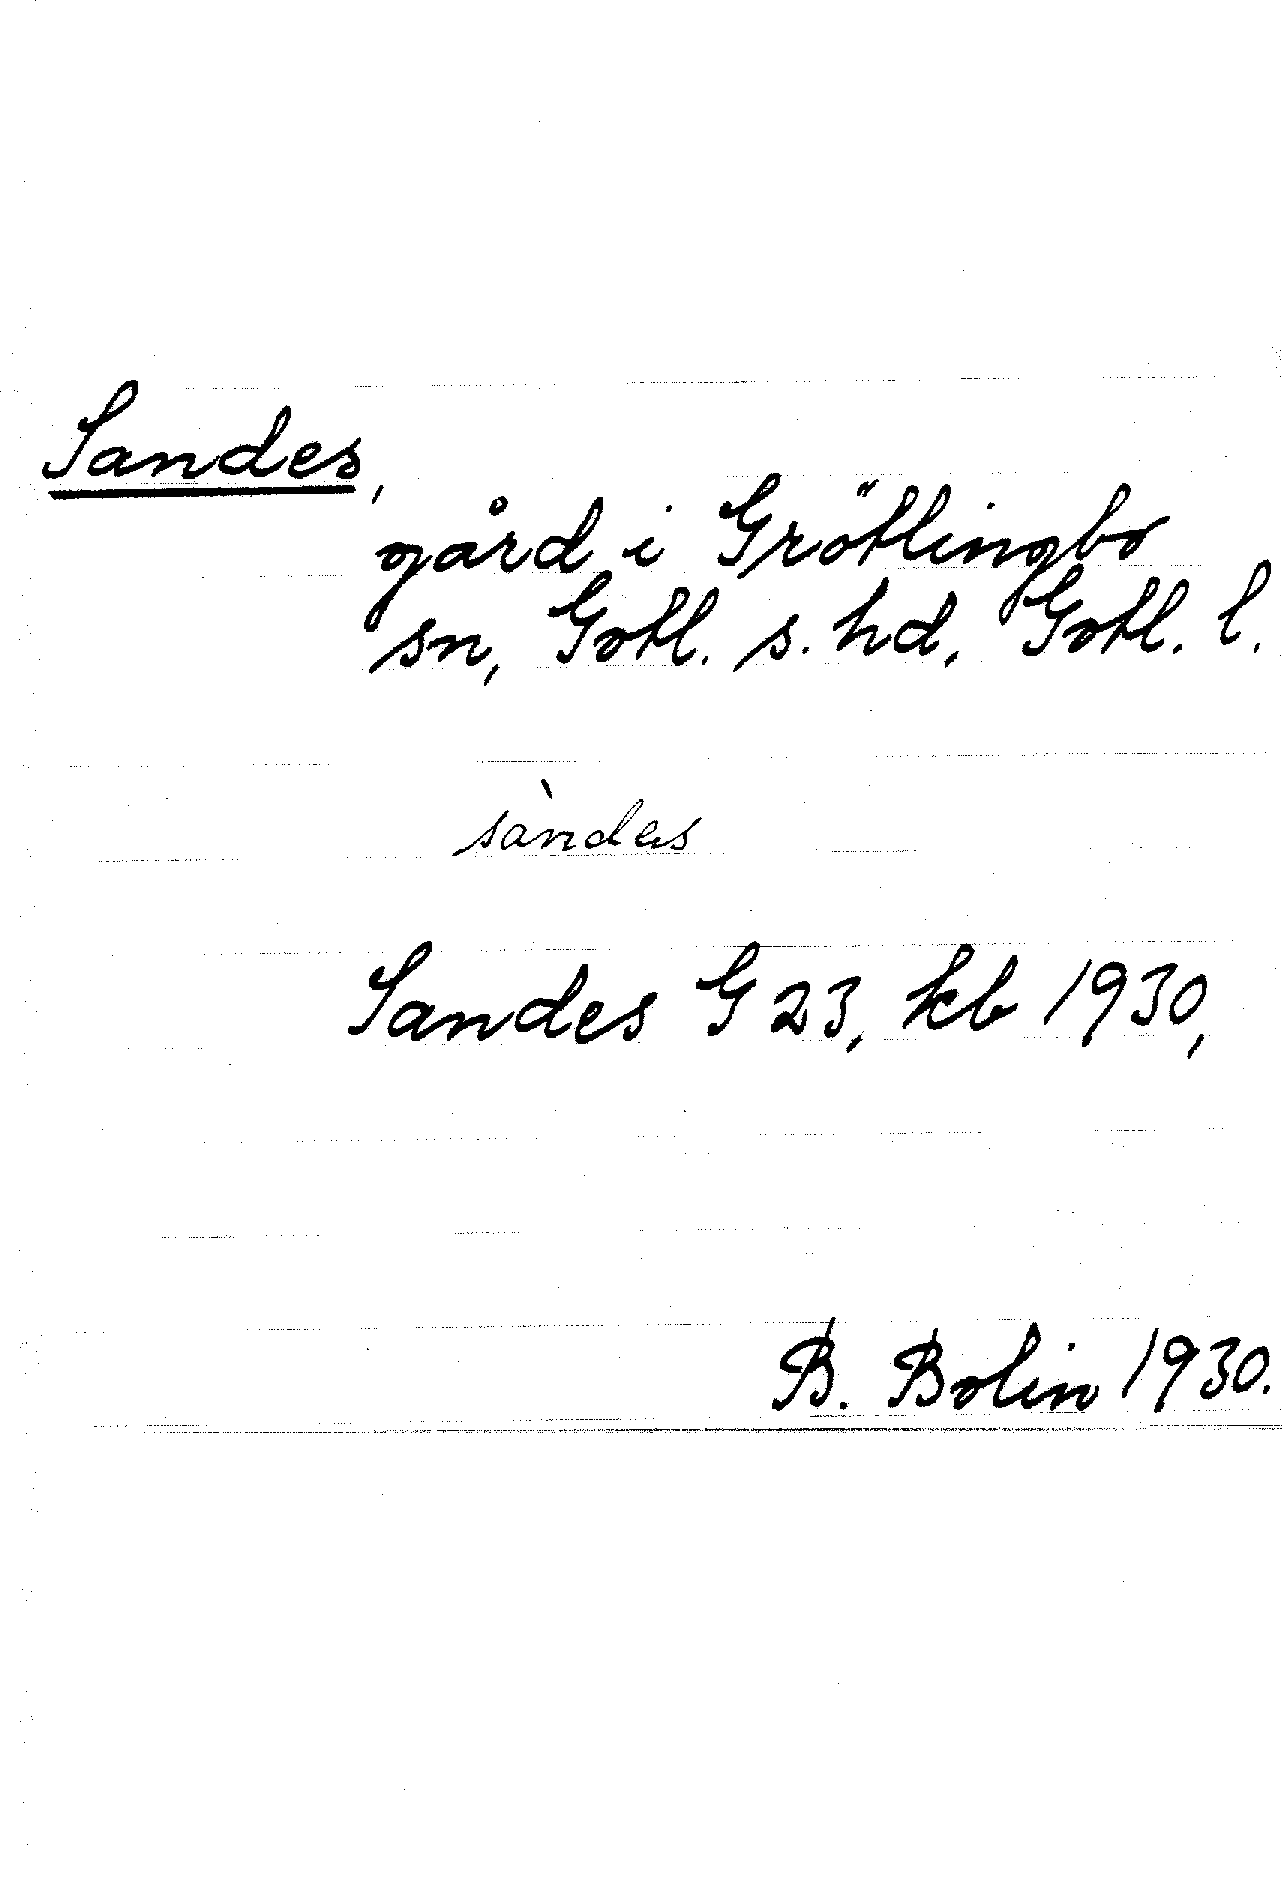 Sandes,
gård i Grötlingbo
sn, Gotl. s. hd, Gotl. l.
sàndes
Sandes G 23, kb 1930,
B. Bolin 1930.